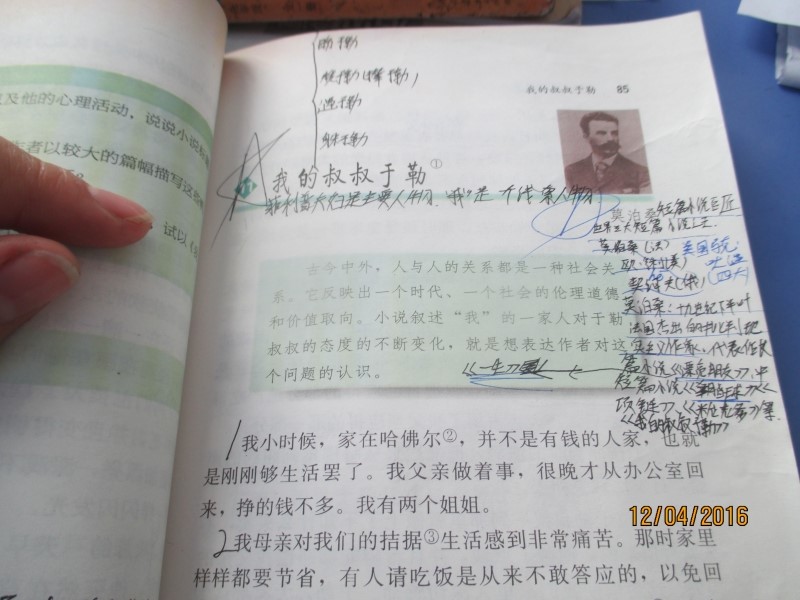 及他的心理活动，说说小说
者以较大的篇幅描写这
试以
我的叔叔于勒 85
我的叔叔于勒①
菲利普夫妇是主要人物，"我"是一个线索人物
莫泊桑 短篇小说巨匠
世界三大短篇小说之王
莫泊桑(法)
美国
欧·亨利(美)
契诃夫(俄)
莫泊桑：十九世纪下半叶
法国杰出的批判现
实主义作家，代表作长
篇小说《漂亮朋友》，中
短篇小说《羊脂球》《
项链》、《米隆老爹》等
《我的叔叔于勒》
古今中外，人与人的关系都是一种社会关
系。它反映出一个时代、一个社会的伦理道德
和价值取向。小说叙述“我”的一家人对于勒
叔叔的态度的不断变化，就是想表达作者对这
个问题的认识。
《一生》
1我小时候，家在哈佛尔②，并不是有钱的人家，也就
是刚刚够生活罢了。我父亲做着事，很晚才从办公室回
来，挣的钱不多。我有两个姐姐。
2我母亲对我们的拮据③生活感到非常痛苦。那时家里
样样都要节省，有人请吃饭是从来不敢答应的，以免回
12/04/2016